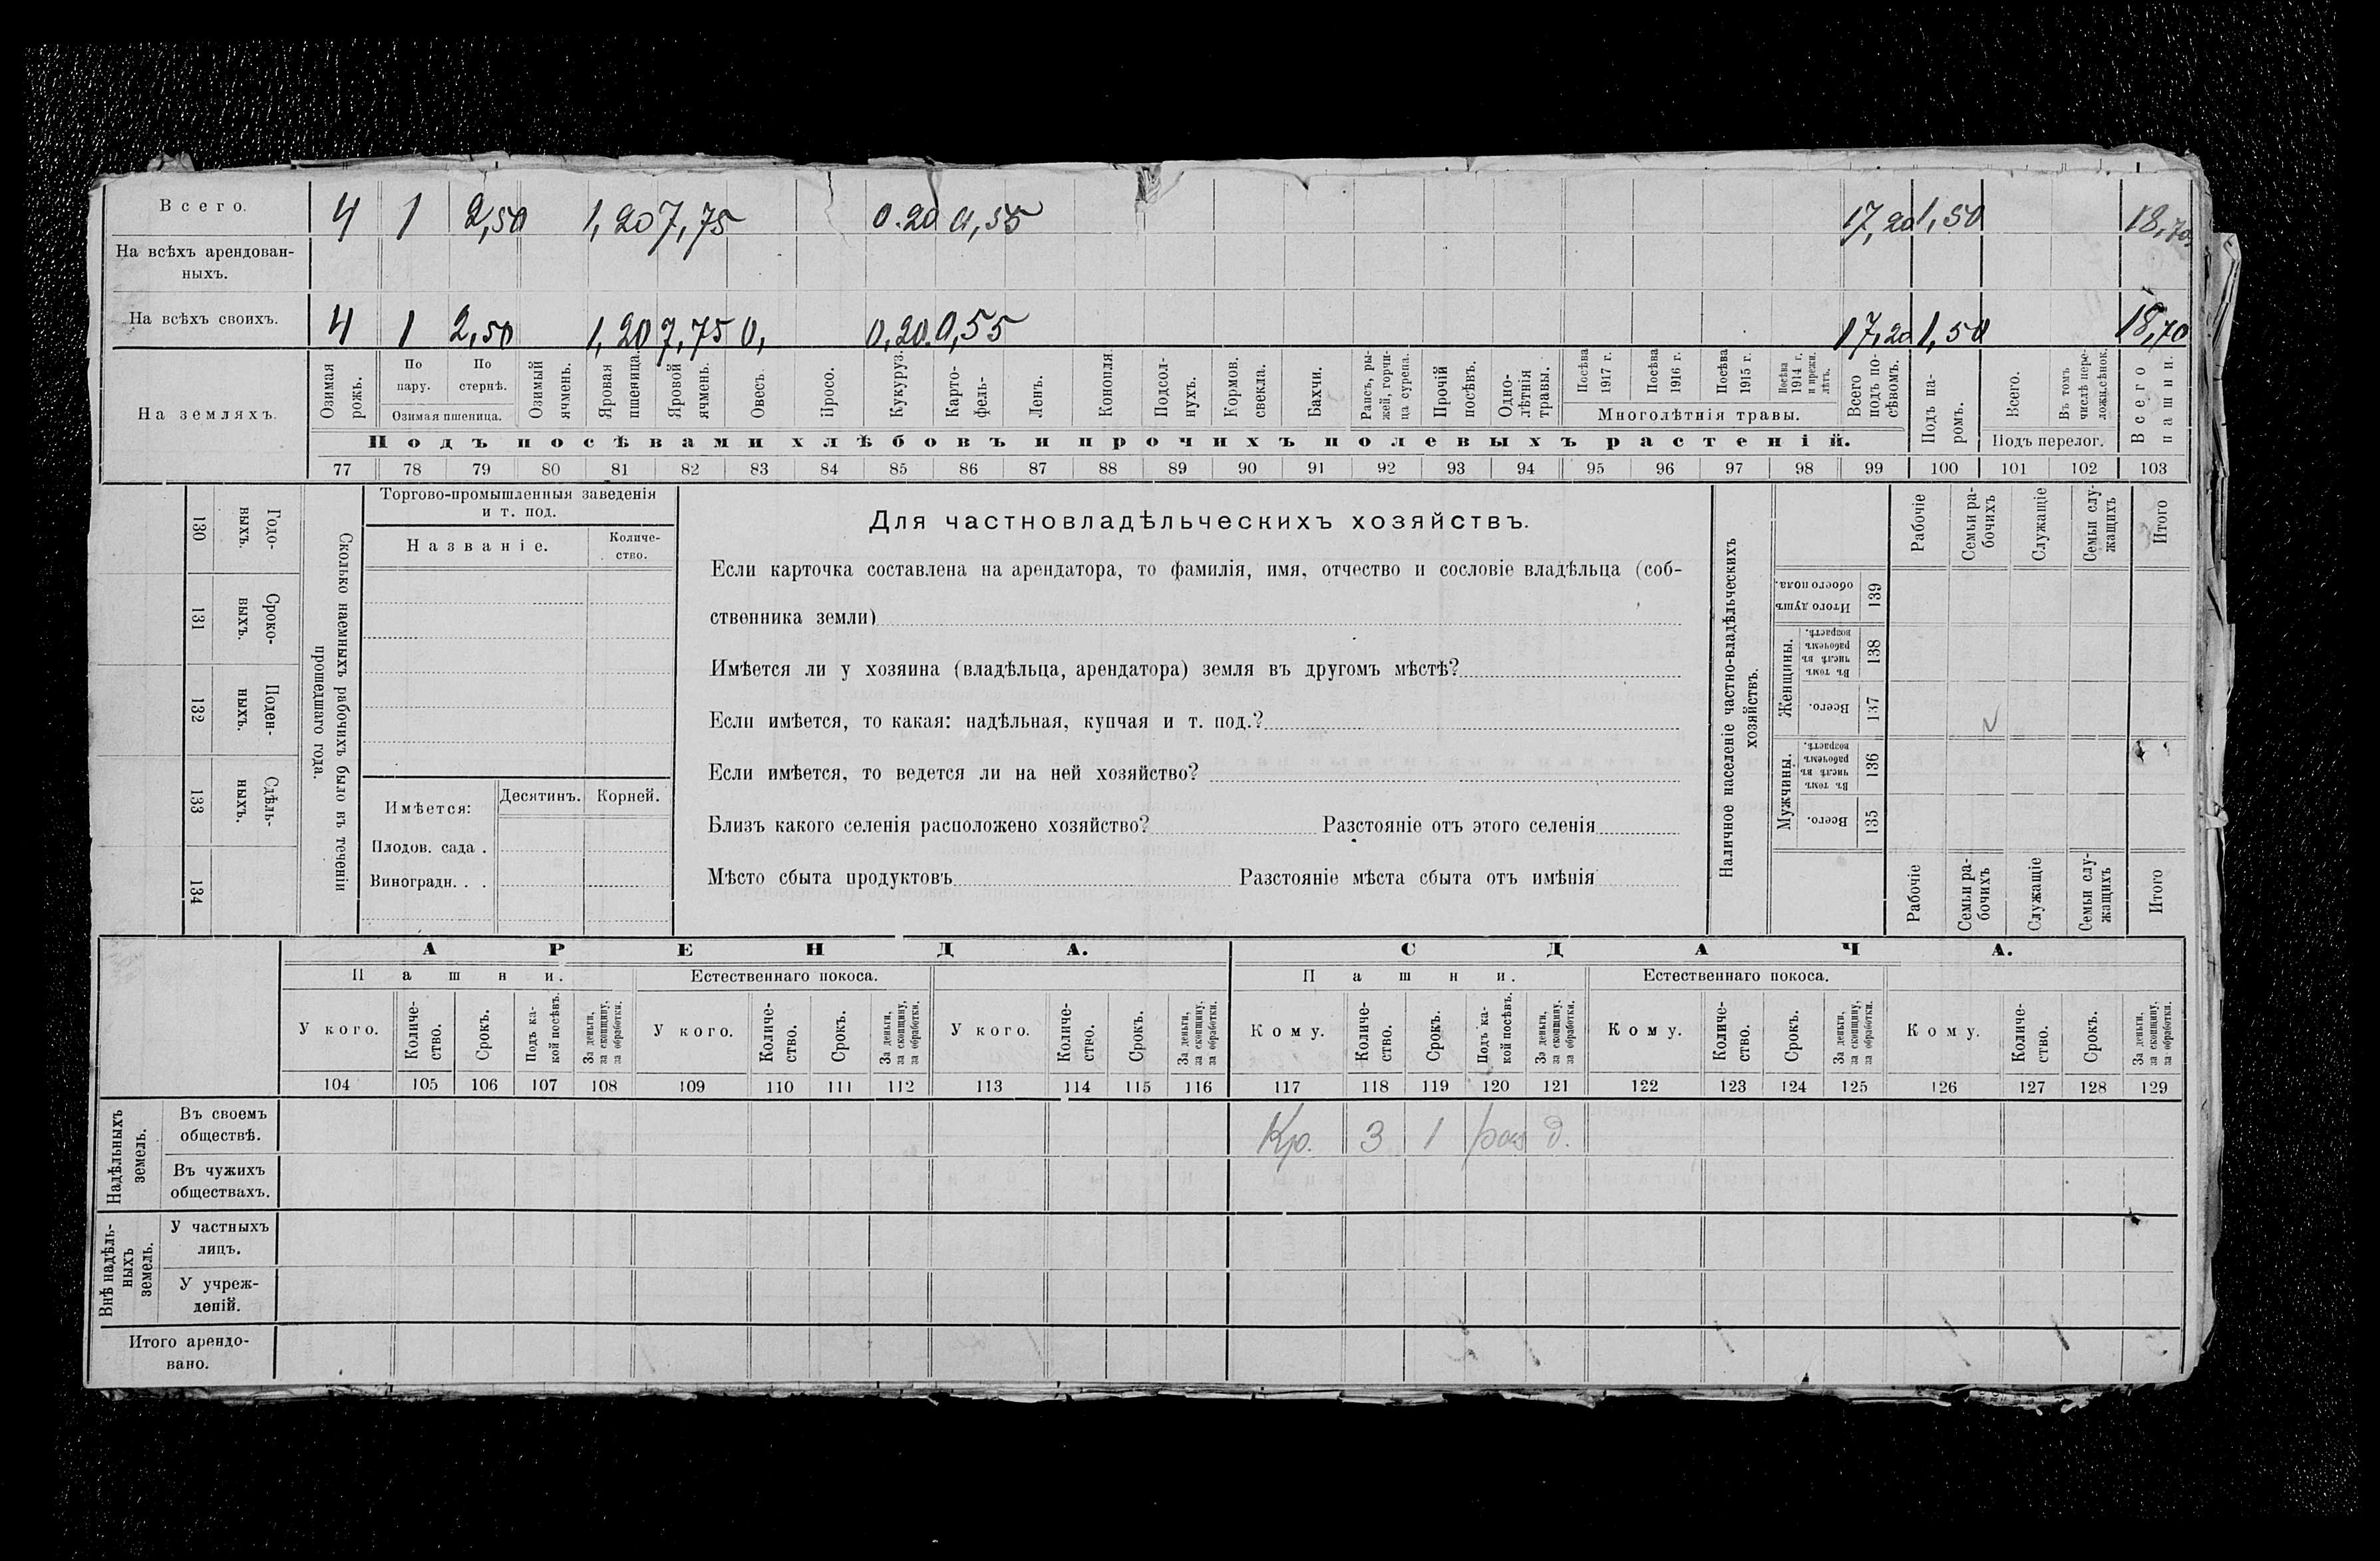 Всего. 4 1 2,50 1,20 7,75 0.20 0,55 17,20 1,50 18,70
На всѣхъ арендован-
ныхъ.
На всѣхъ своихъ. 4 1 2,50 1,20 7,75 0, 0,20 0,55 17,20 1,50 18,70
На земляхъ.
Озимая рожь.
По пару.
По стернѣ.
Озимая пшеница.
Озимый ячмень.
Яровая пшеница.
Яровой ячмень.
Овесъ.
Просо.
Кукуруз.
Карто-
фель-
Ленъ.
Конопля.
Подсол-
нухъ.
Кормов. свекла.
Бахчи.
Рапсъ, ры-
жей, горчи-
ца сурепа.
Прочій посѣвъ.
Одно-
лѣтнія
травы.
Посѣва 1917 г.
Посѣва 1916 г.
Посѣва 1915 г.
Посѣва 1914 г. и прежн. лѣтъ.
Многолѣтнія травы.
Всего подъ по-
сѣвомъ.
Подъ па-
ромъ.
Всего.
Въ томъ числѣ пере-
ложн.сѣнок.
Подъ перелог.
Всего пашни.
Подъ посѣвами хлѣбовъ и прочихъ полевыхъ растеній.
77 78 79 80 81 82 83 84 85 86 87 88 89 90 91 92 93 94 95 96 97 98 99 100 101 102 103
130 Годо-
выхъ.
131 Сроко-
выхъ.
132 Поден-
ныхъ.
133 Сдѣль-
ныхъ.
134
Сколько наемныхъ рабочихъ было въ теченіи
прошедшаго года.
Торгово-промышленныя заведенія
и т. под.
Названіе.
Количе-
ство.
Имѣется:
Десятинъ. Корней.
Плодов. сада .
Виноградн. . .
Для частновладѣльческихъ хозяйствъ.
Если карточка составлена на арендатора, то фамилія, имя, отчество и сословіе владѣльца (соб-
ственника земли)
Имѣется ли у хозяина (владѣльца, арендатора) земля въ другомъ мѣстѣ?
Если имѣется, то какая: надѣльная, купчая и т. под.?
Если имѣется, то ведется ли на ней хозяйство?
Близъ какого селенія расположено хозяйство? Разстояніе отъ этого селенія
Мѣсто сбыта продуктовъ Разстояніе мѣста сбыта отъ имѣнія
Наличное населеніе частно-владѣльческихъ
хозяйствъ.
Рабочіе
Семьи ра-
бочихъ
Служащіе
Семьи слу-
жащихъ
Итого
Итого душъ обоего пола. 139
Женщины.
Въ томъ числѣ въ рабочемъ возрастѣ. 138
Всего. 137
Мужчины.
Въ томъ числѣ въ рабочемъ возрастѣ. 136
Всего. 135
Рабочіе
Семьи ра-
бочихъ
Служащіе
Семьи слу-
жащихъ
Итого
АРЕНДА. СДАЧА.
Пашни. Естественнаго покоса. Пашни. Естественнаго покоса.
У кого.
Количе-
ство.
Срокъ.
Подъ ка-
кой посѣвъ.
За деньги,
за скопщину,
за обработки.
У кого.
Количе-
ство.
Срокъ.
За деньги,
за скопщину,
за обработки.
У кого.
Количе-
ство.
Срокъ.
За деньги,
за скопщину,
за обработки.
Кому.
Количе-
ство.
Срокъ.
Подъ ка-
кой посѣвъ.
За деньги,
за скопщину,
за обработки.
Кому.
Количе-
ство.
Срокъ.
За деньги,
за скопщину,
за обработки.
Кому.
Количе-
ство.
Срокъ.
За деньги,
за скопщину,
за обработки.
104 105 106 107 108 109 110 111 112 113 114 115 116 117 118 119 120 121 122 123 124 125 126 127 128 129
Надѣльныхъ
земель.
Въ своемъ
обществѣ.
Кр. 3 1 д.
Въ чужихъ
обществахъ.
Внѣ надѣль-
ныхъ
земель.
У частныхъ
лицъ.
У учреж-
деній.
Итого арендо-
вано.